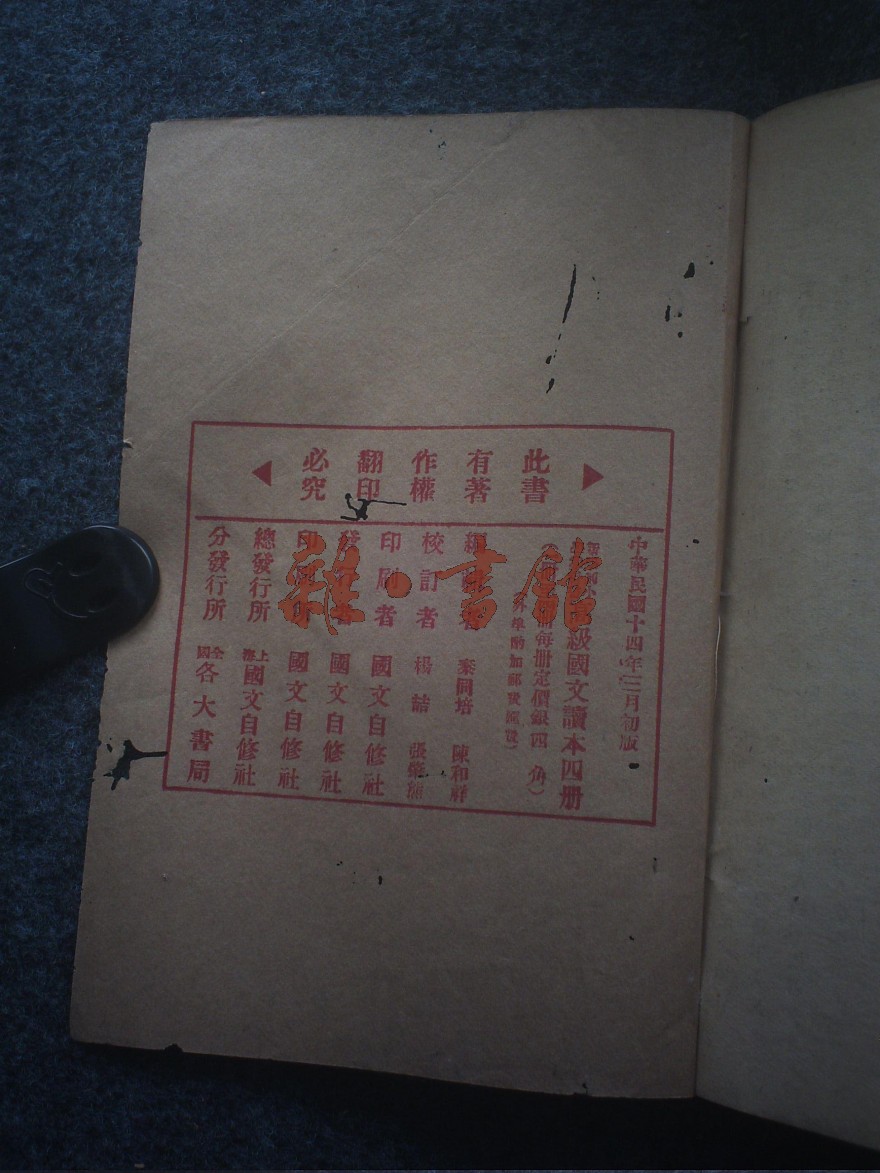 此書有著作權翻印必究
中華民國十四年三月初版
級國文讀本四册
每册定價銀四角）
外埠酌加郵費滙費）
秦同培 陳和祥
校訂者 楊喆 張
印刷者 國文自修社
國文自修社
國文自修社
總發行所 上海國文自修社
分發行所 全國各大書局
雜·書館